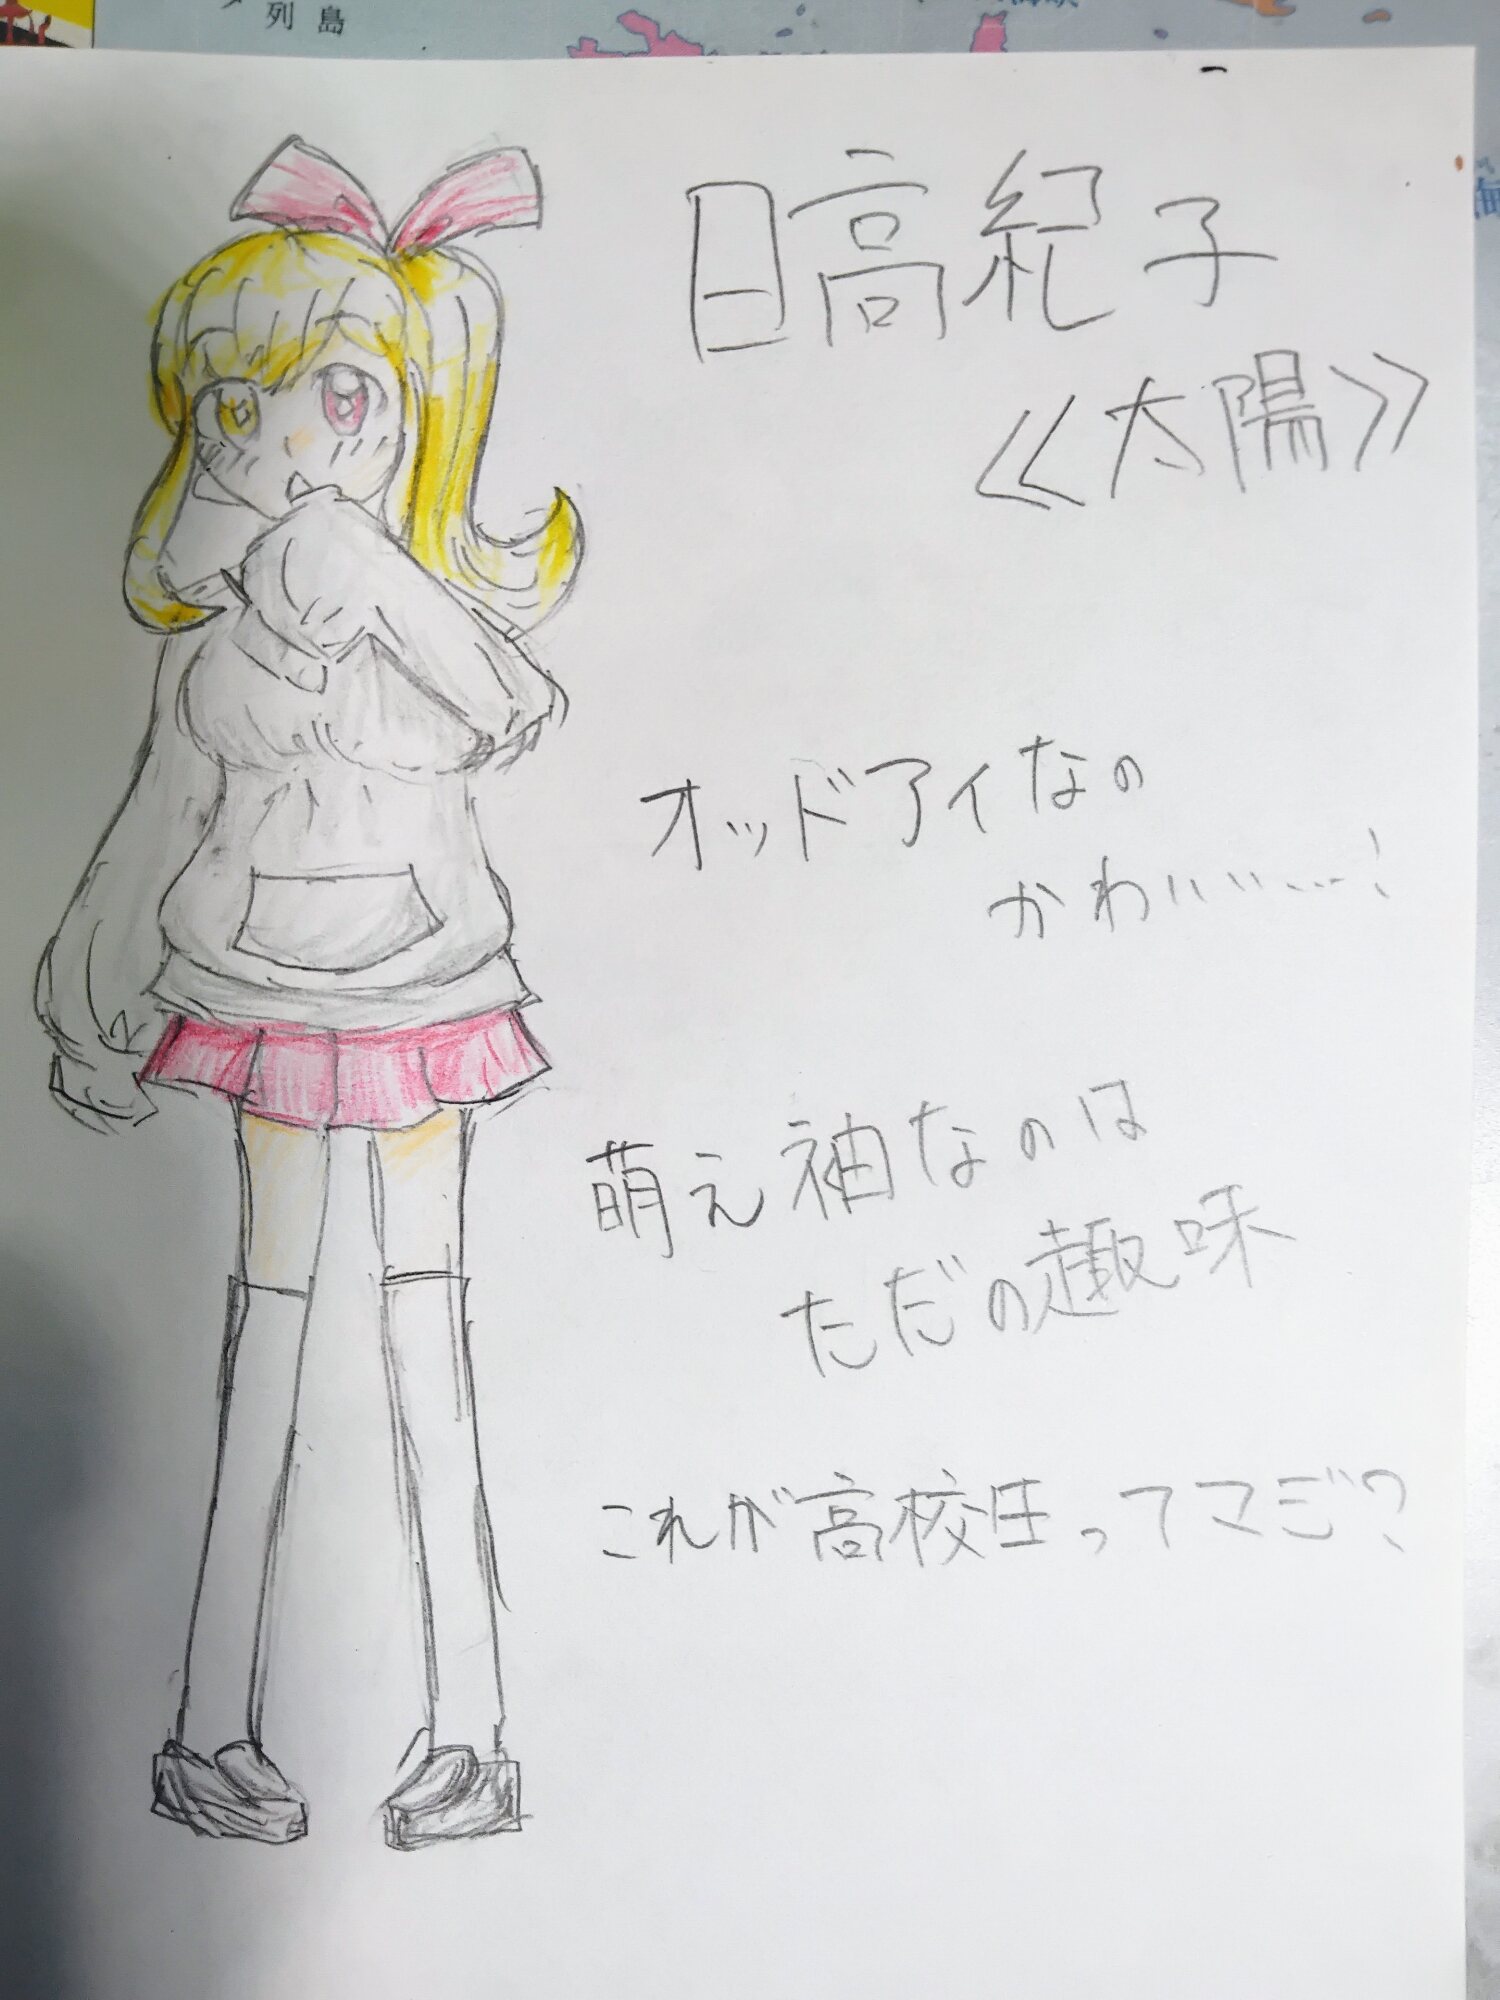 列島
日高紀子
≪太陽≫
オッドアイなの
かわいい……!
萌え袖なのは
ただの趣味
これが高校生ってマジ?